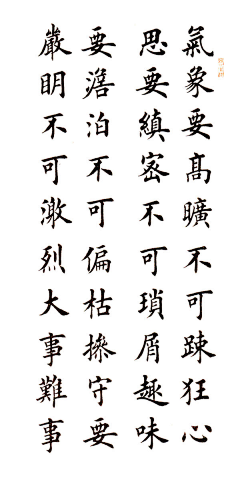 氣象要髙曠不可踈狂心
思要縝密不可瑣屑趣味
要澹泊不可偏枯操守要
嚴眀不可激烈大事難事